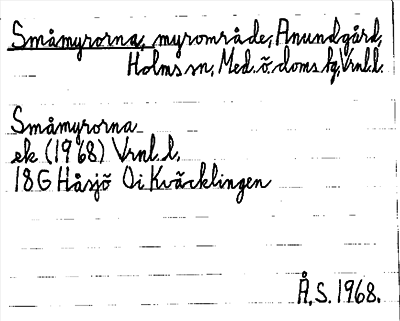 Småmyrorna, myrområde, Anundgård,
Holms sn, Med. ö. doms fg, Vrnl. l.
Småmyrorna
ek (1968) Vrnl. l.
18G Håsjö Oi Kväcklingen
Å. S. 1968.